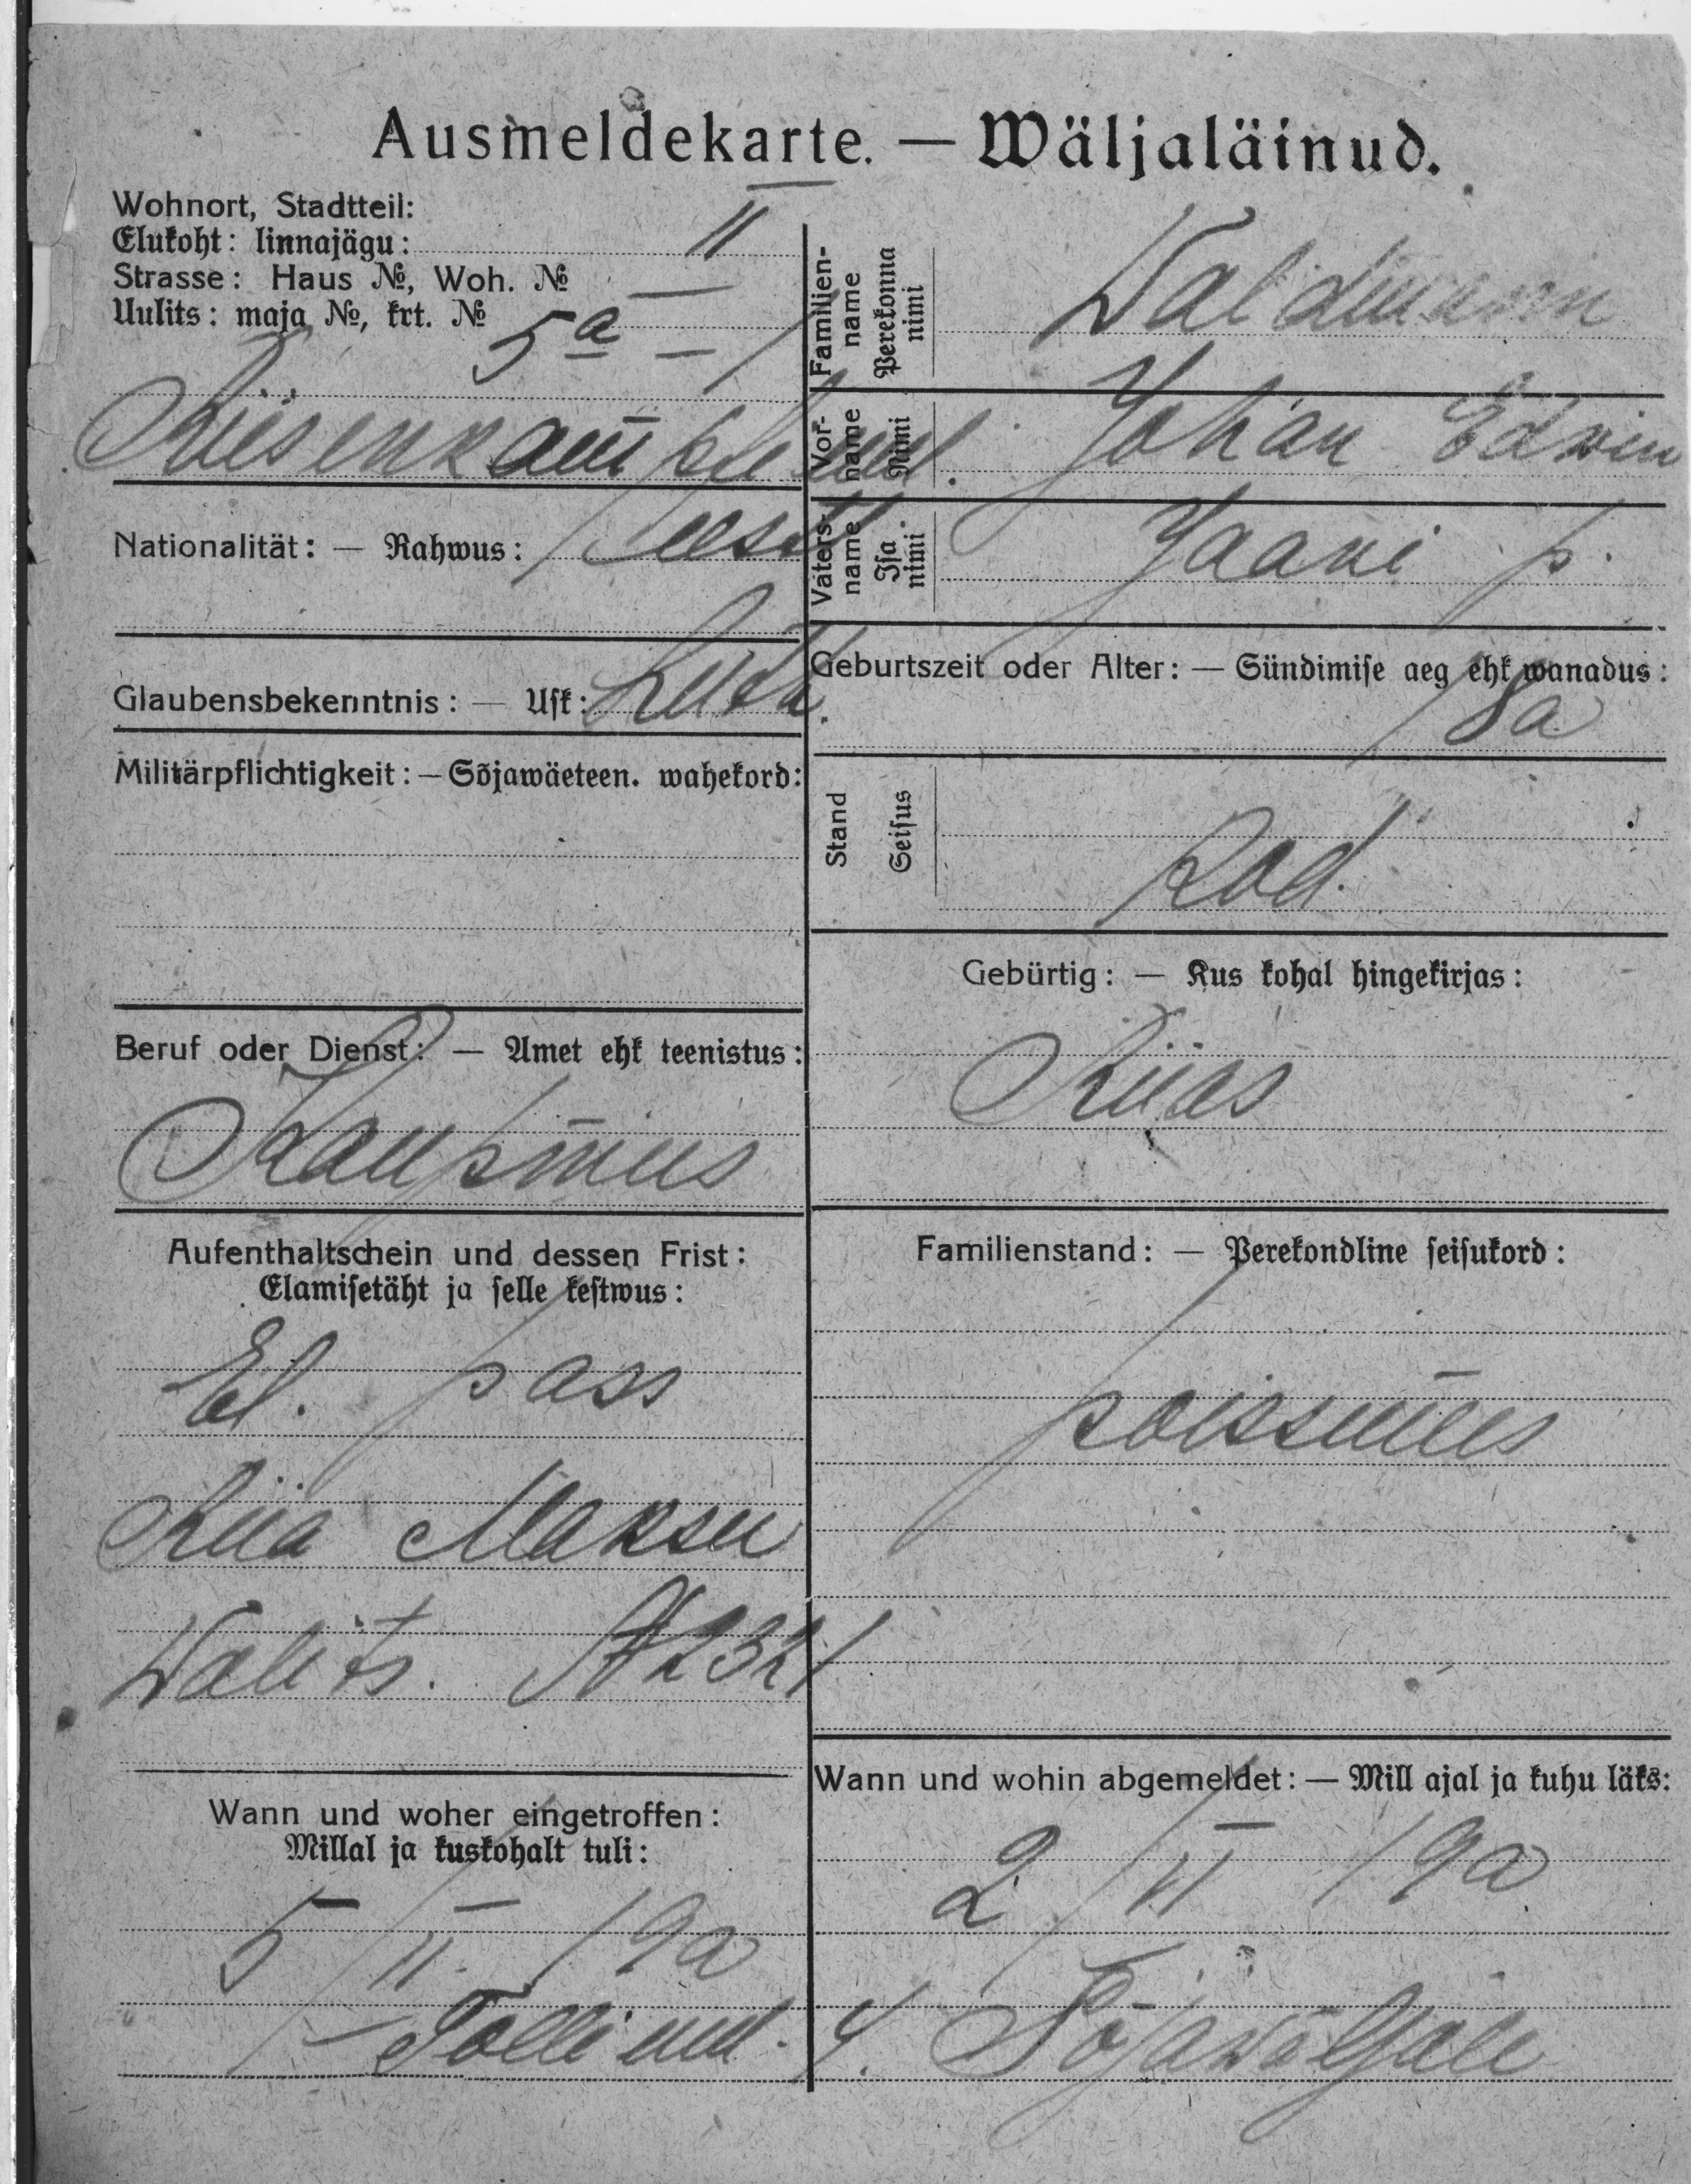 Ausmeldekarte. — Wäljaläinud.
Wohnort, Stadtteil:
Elukoht: linnajägu: II
Strasse: Haus №, Woh. №
Uulits: maja №, krt. № 5a — 1
Nationalität: — Rahwus: Eesti
Glaubensbekenntnis: — Usk: Luth.
Militärpflichtigkeit: — Sõjawäeteen. wahekord:
Beruf oder Dienst: — Amet ehk teenistus:
Kaupmees
Aufenthaltschein und dessen Frist:
Elamisetäht ja selle kestwus:
El. pass
Riia Maksu
Walits. № 2321
Wann und woher eingetroffen:
Millal ja kuskohalt tuli:
5/II. 19a
Familien-name Perekonna nimi Waldmann
Vor-name Nimi Johan Edwin
Vaters-name Isa nimi Jaani p.
Geburtszeit oder Alter: — Sündimise aeg ehk wanadus:
18a
Stand Seisus Kod.
Gebürtig: — Kus kohal hingekirjas:
Riias
Familienstand: — Perekondline seisukord:
poissmees
Wann und wohin abgemeldet: — Mill ajal ja kuhu läks:
2/VI 19a
Sõjawäljale